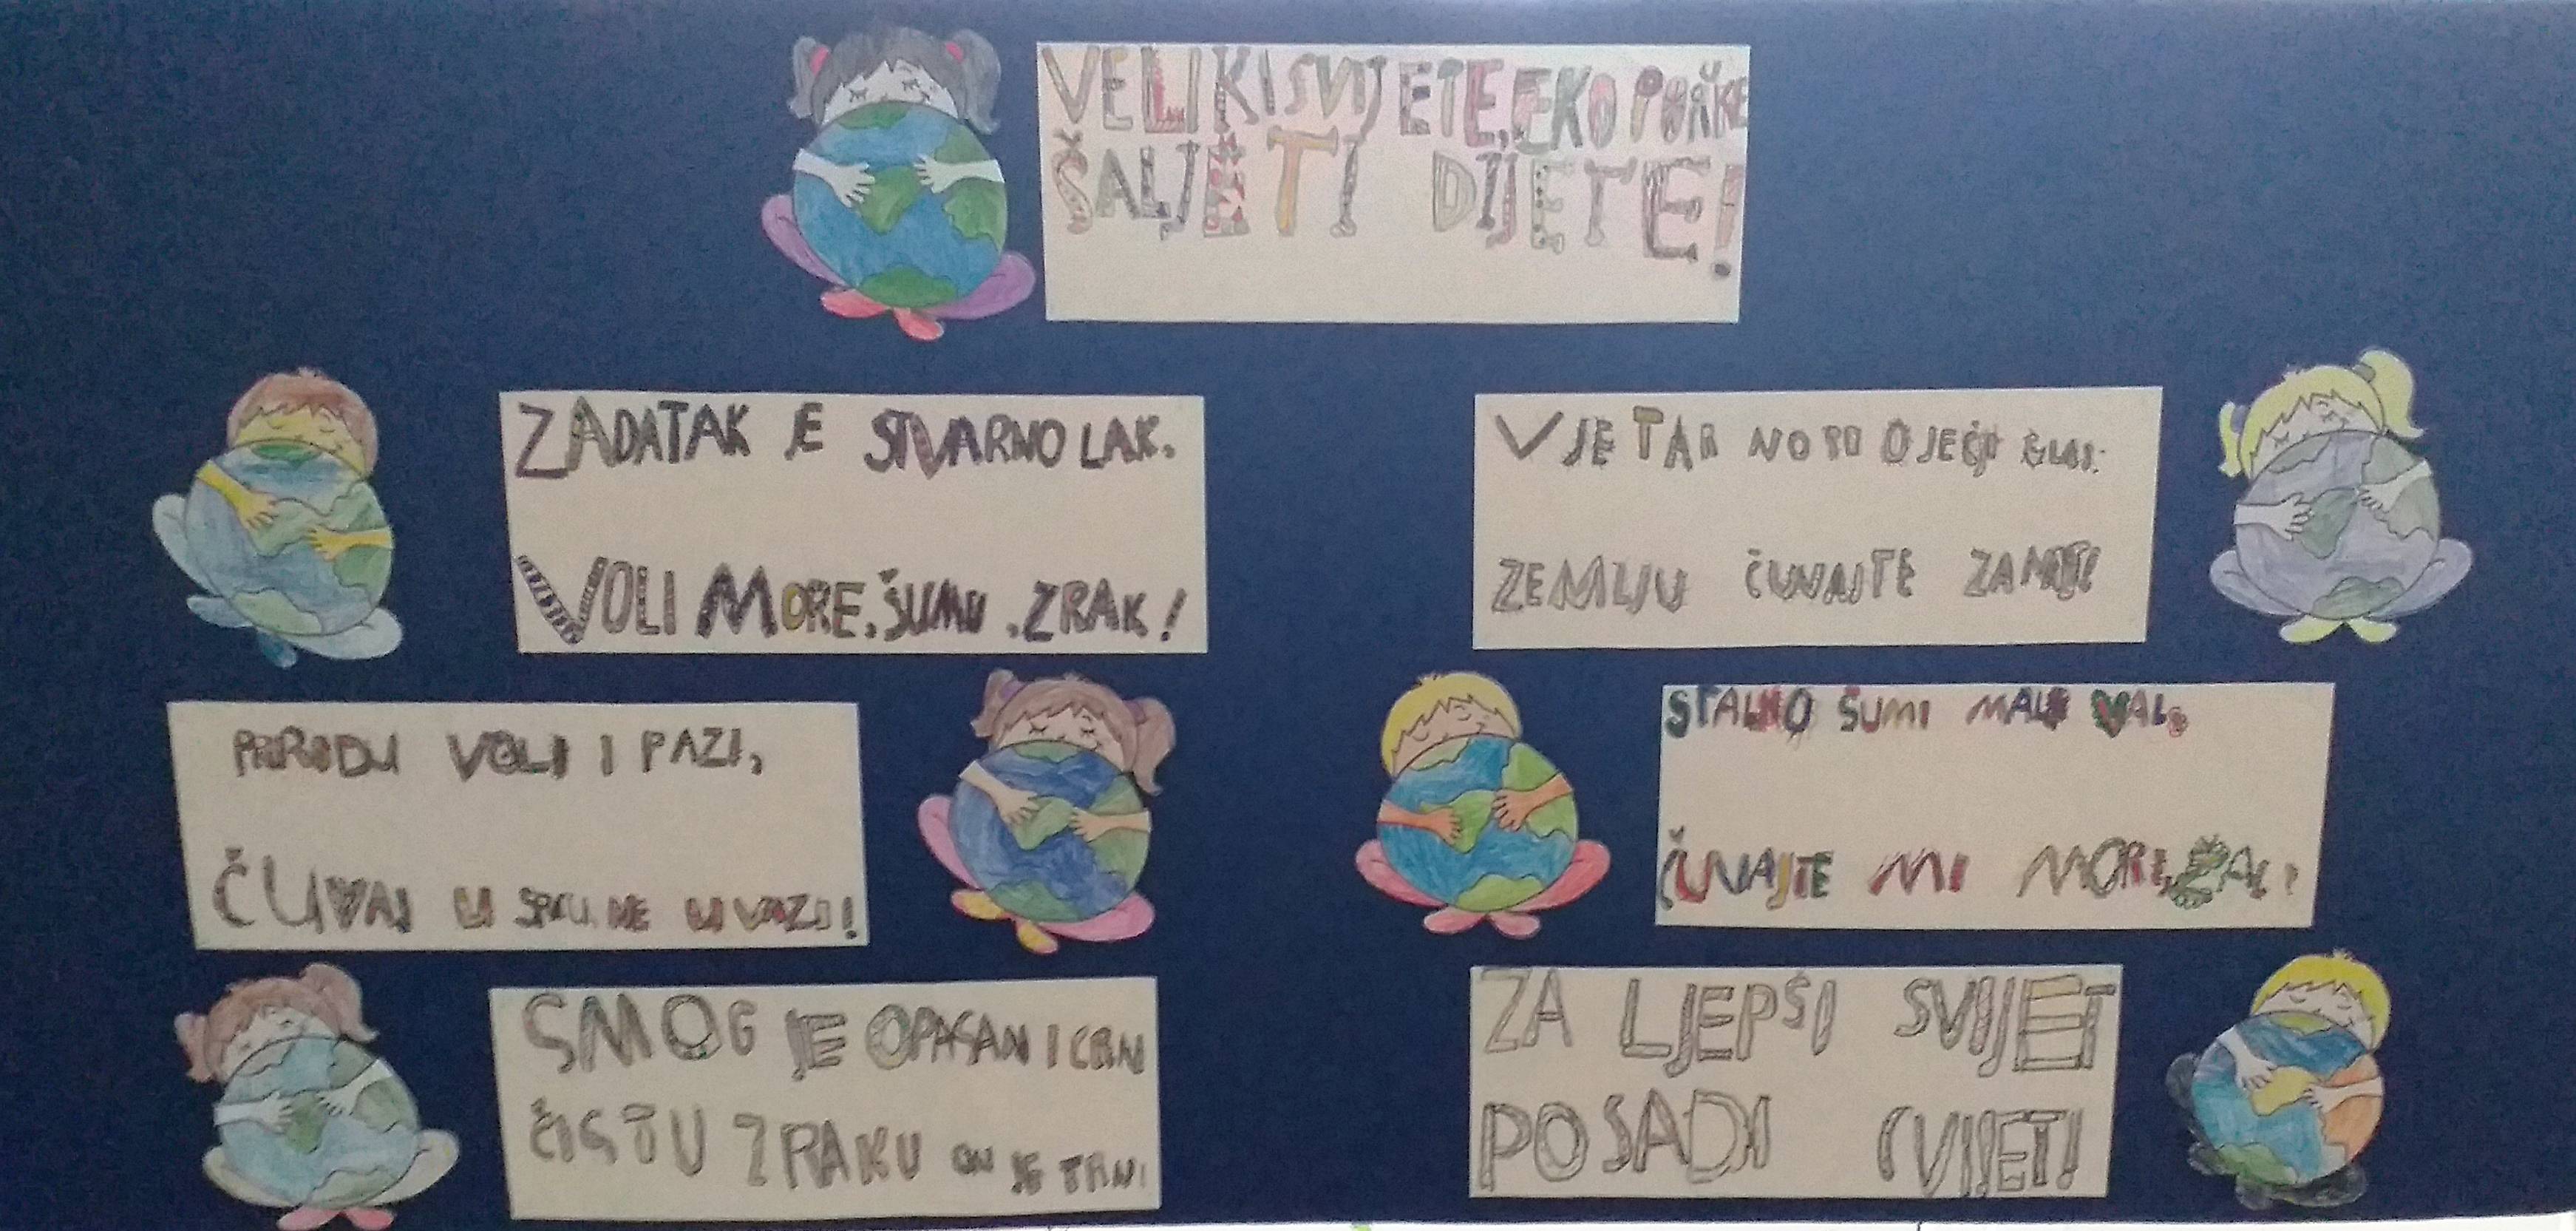 VELIKI SVIJETE, EKO PORUKE
ŠALJE TI DIJETE!
ZADATAK JE STVARNO LAK.
VOLI MORE, ŠUMU, ZRAK!
VJETAR NOSI DJEČJI GLAS:
ZEMLJU ČUVAJTE ZA NAS!
PRIRODU VOLI I PAZI,
ČUVAJ U SRCU, NE U VAZI!
STALNO ŠUMI MALI VAL:
ČUVAJTE MI MORE, ŽAL!
SMOG JE OPASAN I CRN
ČISTU ZRAKU ON JE TRN!
ZA LJEPŠI SVIJET
POSADI CVIJET!